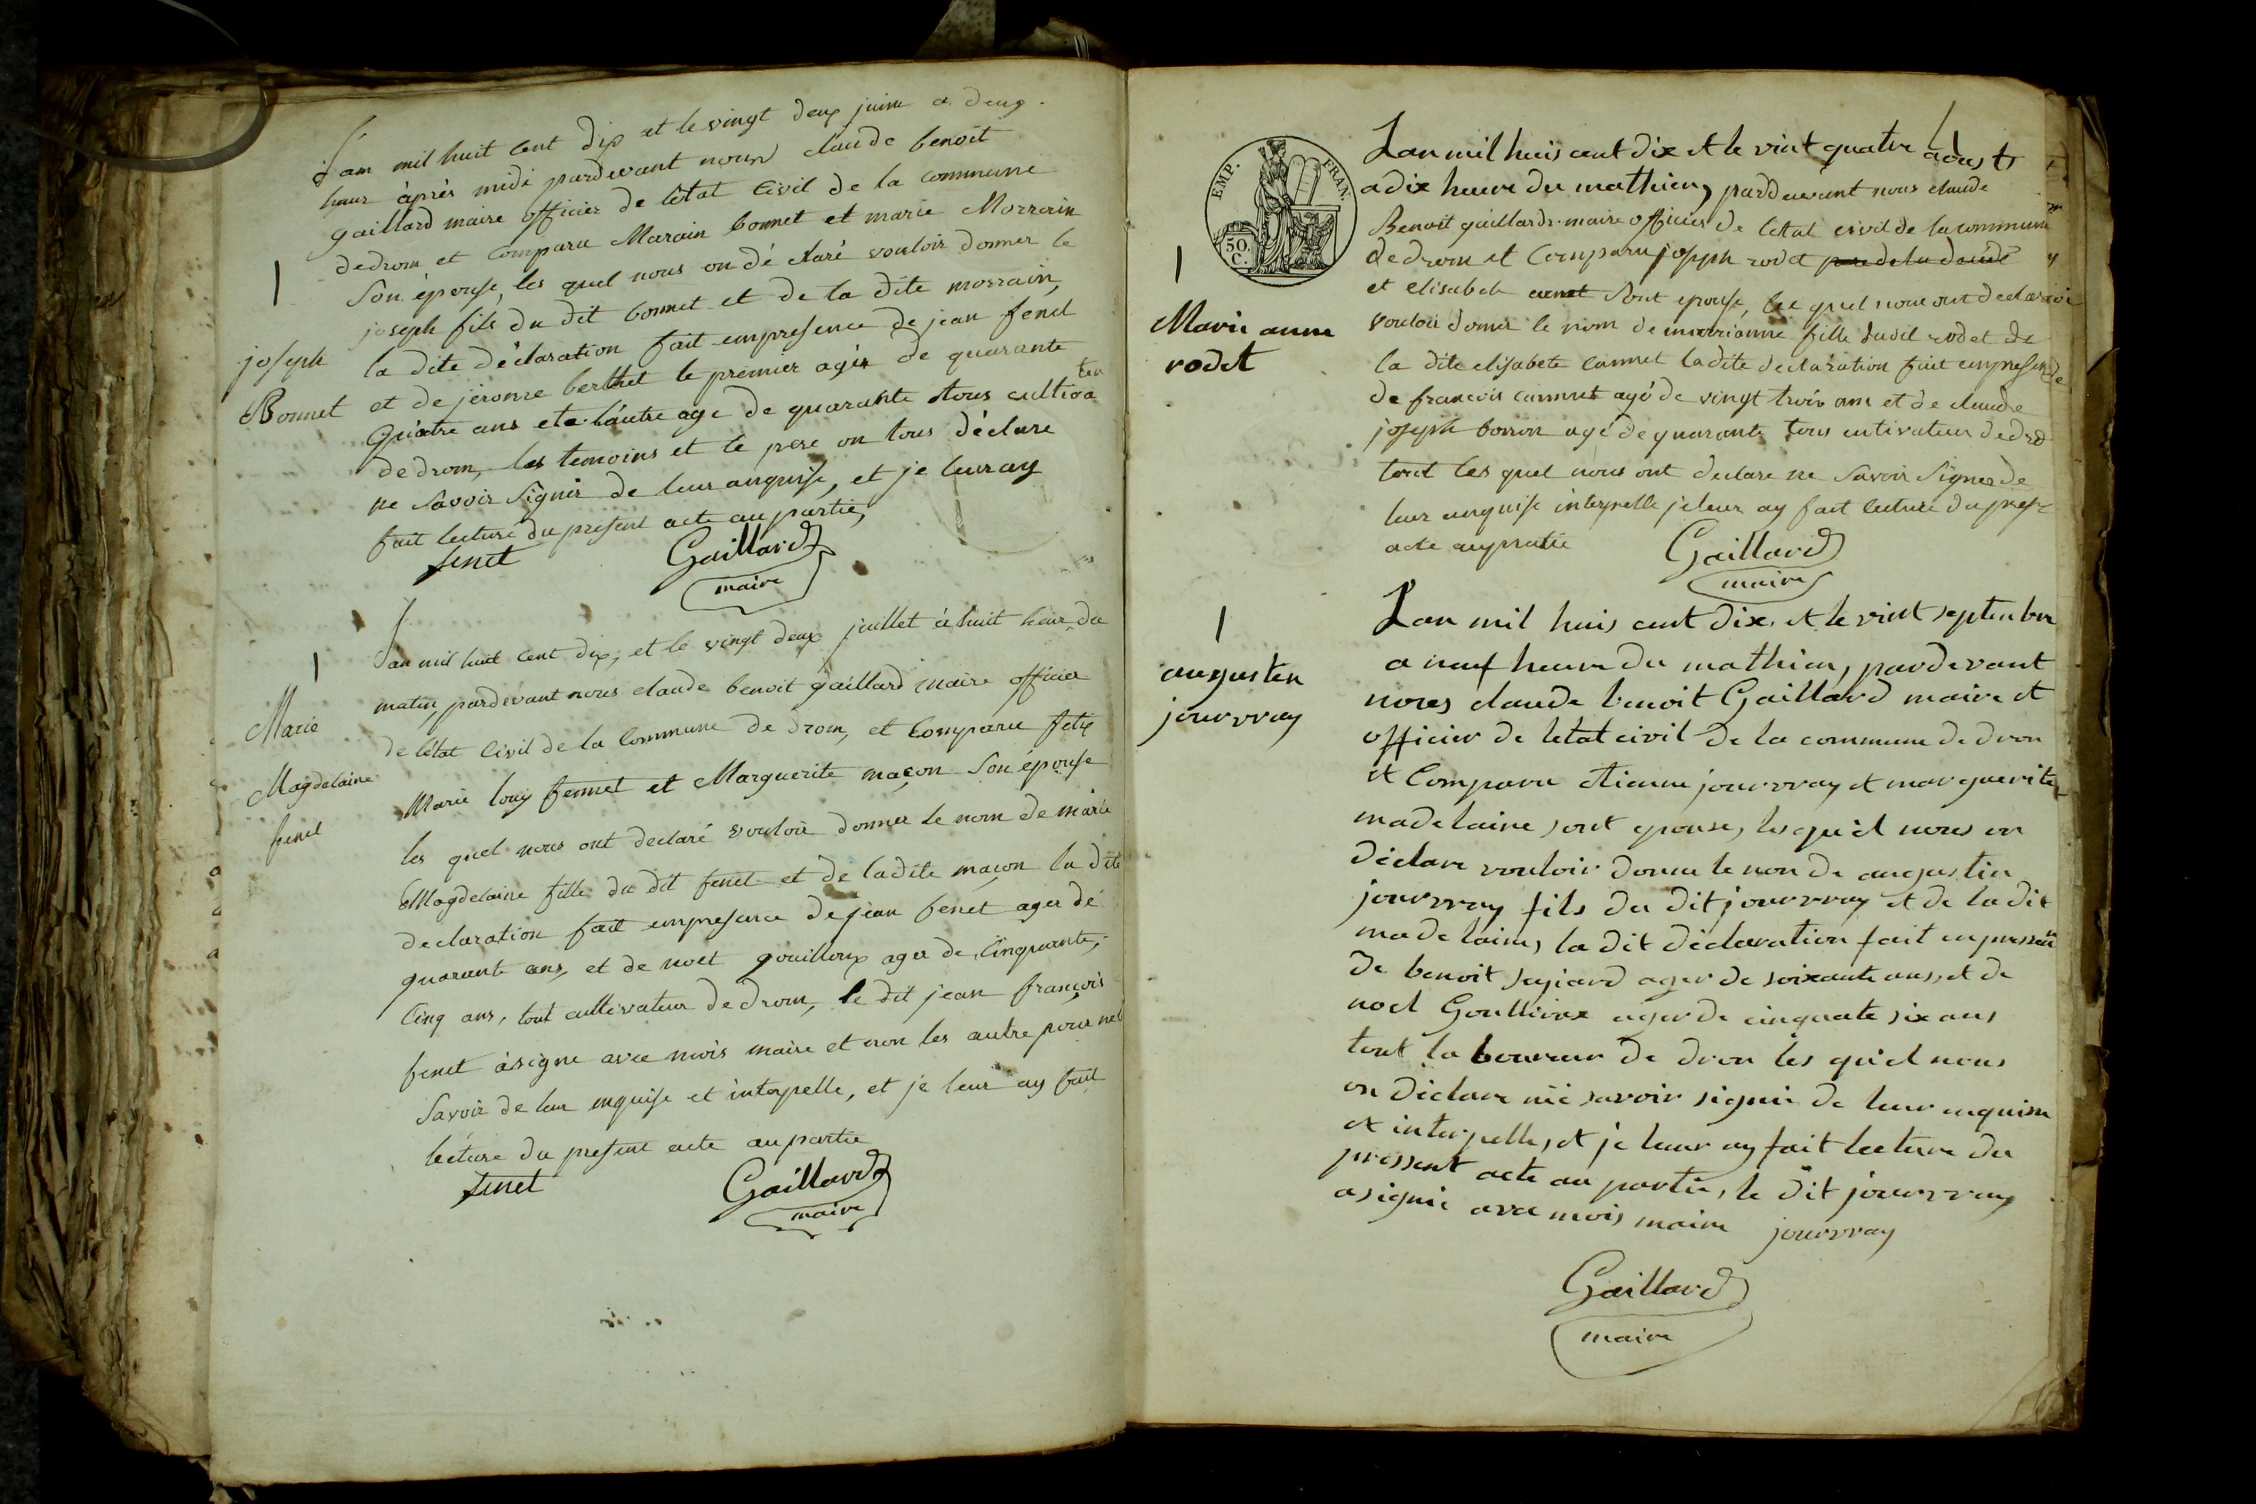 Lan mil huit cent dix et le vingt deux juin a deux
heur àprès midi pardevant nous claude benoit
gaillard maire officier de létat Civil de la commune
de drom et comparu Marain bonnet et marie Morrain
Son épouse, les quel nous on dé claré vouloir donner le
joseph fils du dit bonnet et de la dite morrain,
la dite déclaration fait empresence de jean fenet
et de jérome berthet le premier agér de quarante
quiatre ans et lautre age de quarante tous cultiva
teu
de drom, les temoins et le pere on tous déclare
ne Savoir Signér de leur anquise, et je leur ay
fait lecture du present acte au partie,
fenet Gaillard
maire
joseph
Bonnet
Lan mil huit cent dix, et le vingt deux juillet à huit heur du
matin, pardevant nous claude benoit gaillard maire officier
de létat Civil de la Commune de drom, et Comparu felix
Marie louy fennet et Marguerite maçon Son épouse
les quel nous ont declaré vouloir donner le nom de marie
Magdelaine fille du dit fenet et de ladite maçon la dite
declaration fait empresence de jean fenet ager dé
quarante ans, et de noel gouilloux ager de Cinquante,
Cinq ans, tout cultivateur de drom, le dit jean françois
fenet àsigne avec mois maire et non les autre pour ne
Savoir de leur enquise et interpelle, et je leur ay fait
lécture du present acte au partie
fenet Gaillard
maire
Marie
Magdelaine
fenet
EMP. FRAN.
50. C.
Lan mil huis cent dix et le vint quatre adust
a dix heure du mathien, pardevant nous claude
Benoit gaillard maire officier de létat civil de la commune
de drom et Comparu joseph rodet
et elisabete Sont epouse, les quel nous ont declare
vouloir donner le nom de marianne fille dudit rodet de
la dite elisabete cannet ladite declaration fait empresence
de francois cannet agé de vingt trois ans et de claude
joseph borron agé de quarante tous cutivateur de dro
tout les quel nous ont declare ne Savoir Signer de
leur anquise interpelle je leur ay fait lecture du prest
acte au partie
Gaillard
maire
Marie anne
rodet
Lan mil huis cent dix, et le vint septenbre
a neuf heure du mathien, pardevant
nous claude benoit Gaillard maire et
officier de letat civil de la commune de dron
et Comparu etienne jourvray et marguerite
madelaine sont epouse, les quel nous on
déclare vouloir donne le non de augustin
jourvray fils du dit jourvray et de la dit
madelaine, la dit déclaration fait enpressen
de benoit ager de soixante ans, et de
noel Goullioux ager de cinquate six ans
tout laboureur de dron les quel nous
on déclare né savoir signié de leur enquisse
et interpelle, et je leur ay fait lecture du
pressent acte au partie, le dit jourvray
a signié avec mois maire jourvray
Gaillard
maire
augusten
jourvray